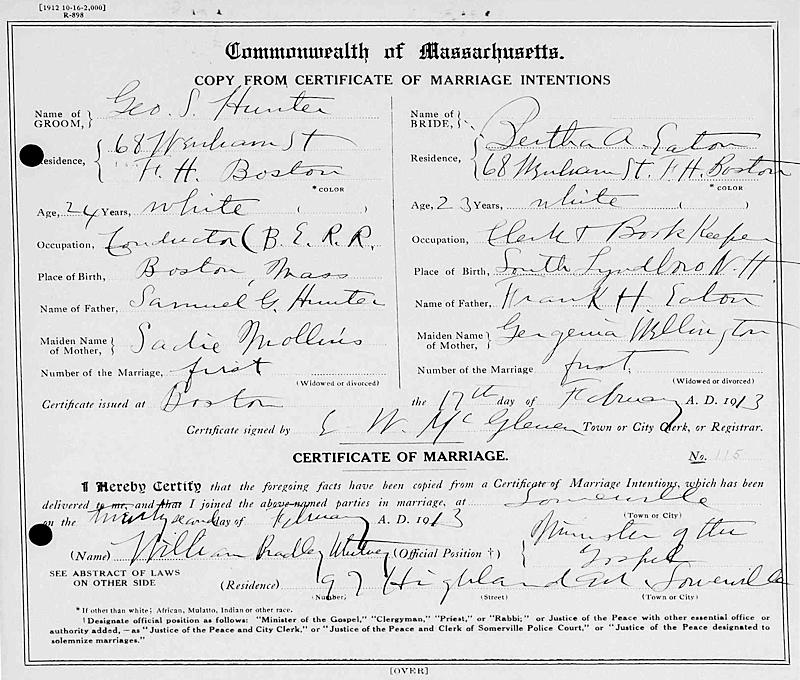 [1912 10-16-2,000]
R-898
Commonwealth of Massachusetts.
COPY FROM CERTIFICATE OF MARRIAGE INTENTIONS
Name of GROOM, Geo. S. Hunter
Residence, 68 Wenham St
F. H. Boston
* COLOR
Age, 24 Years, white ( )
Occupation, Conductor (B. E. R. R.
Place of Birth, Boston, Mass
Name of Father, Samuel G. Hunter
Maiden Name of Mother, Sadie Mollins
Number of the Marriage, first
(Widowed or divorced)
Name of BRIDE, Bertha A. Eaton
Residence, 68 Wenham St. F. H. Boston
* COLOR
Age, 23 Years, white ( )
Occupation, Clerk & Book Keeper
Place of Birth, South Lyndboro N. H.
Name of Father, Frank H. Eaton
Maiden Name of Mother, Wellington
Number of the Marriage, first
(Widowed or divorced)
Certificate issued at Boston the 17th day of February A. D. 1913
Certificate signed by E W. McGlenen Town or City Clerk, or Registrar.
CERTIFICATE OF MARRIAGE. No. 115
I Hereby Certify that the foregoing facts have been copied from a Certificate of Marriage Intentions, which has been
delivered to me, and that I joined the above-named parties in marriage, at Somerville
(Town or City)
on the twenty second day of February A. D. 1913
(Name) William Bradley Whitney (Official Position †) Minister of the Gospel
SEE ABSTRACT OF LAWS
ON OTHER SIDE
(Residence) 97 Highland Ave Somerville
(Number) (Street) (Town or City)
* If other than white; African, Mulatto, Indian or other race.
† Designate official position as follows: "Minister of the Gospel," "Clergyman," "Priest," or "Rabbi;" or Justice of the Peace with other essential office or
authority added, — as "Justice of the Peace and City Clerk," or "Justice of the Peace and Clerk of Somerville Police Court," or "Justice of the Peace designated to
solemnize marriages."
[OVER]